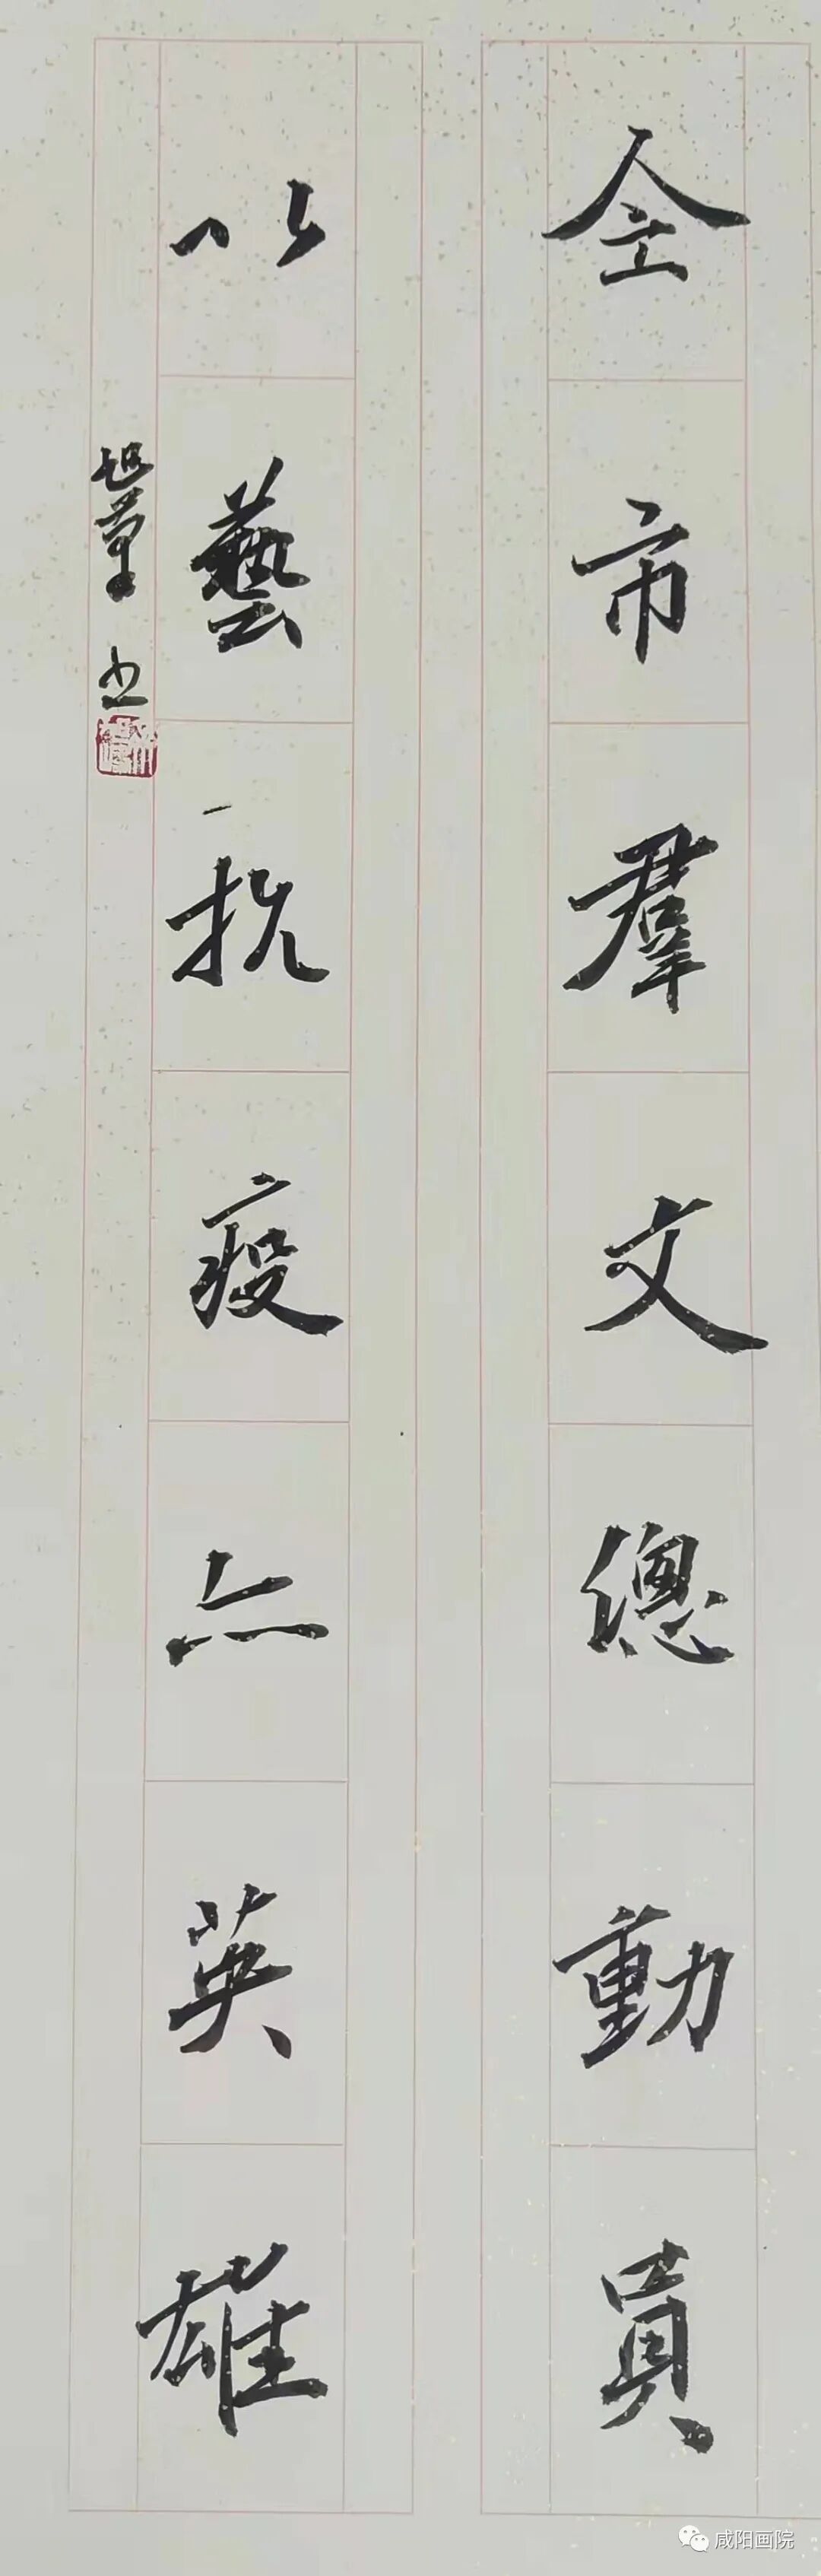 全市羣文總動員
以藝抗疫亦英雄
书
咸阳画院